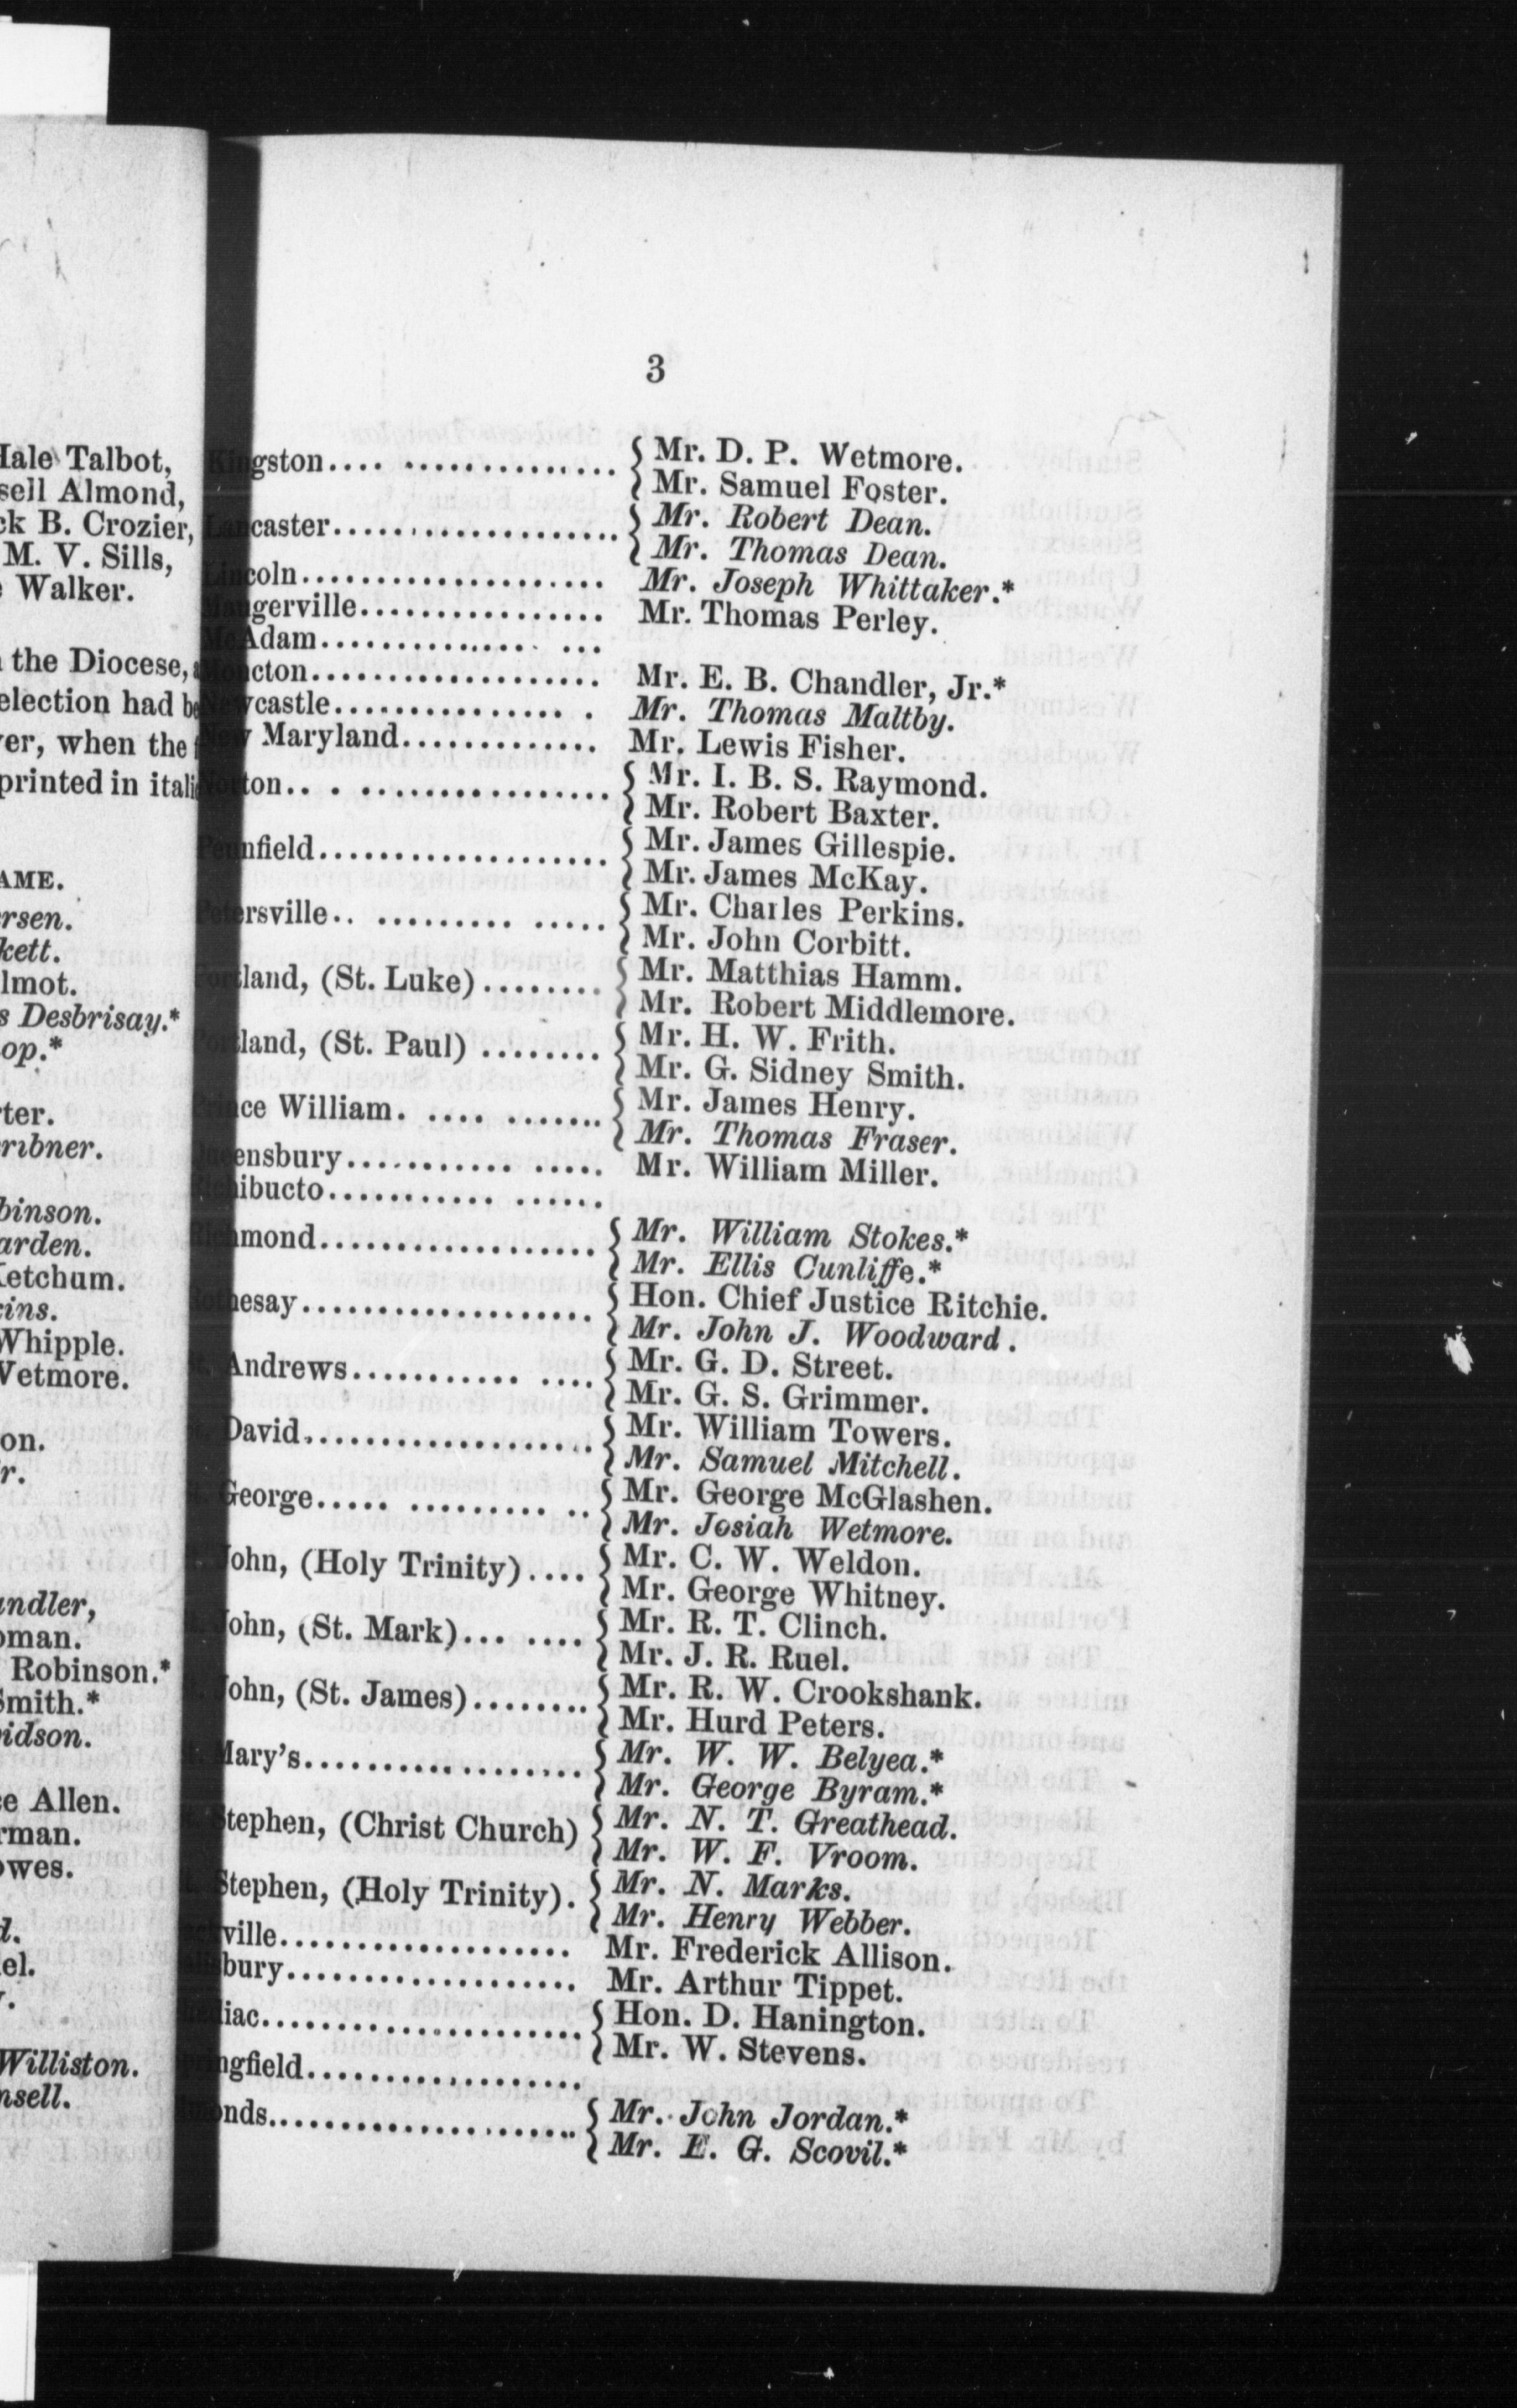 Hale Talbot,
sell Almond,
ck B. Crozier,
M. V. Sills,
Walker.
the Diocese,
election had be
er, when the
printed in itali
AME.
rsen.
kett.
lmot.
s Desbrisay.*
op.*
ter.
ribner.
binson.
arden.
Ketchum.
kins.
Whipple.
Wetmore.
on.
r.
andler,
oman.
Robinson.*
Smith.*
vidson.
ce Allen.
rman.
owes.
d.
el.
Williston.
nsell.
3
Kingston.... .............. { Mr. D. P. Wetmore.
{ Mr. Samuel Foster.
Lancaster................... { Mr. Robert Dean.
{ Mr. Thomas Dean.
Lincoln.................... Mr. Joseph Whittaker.*
Maugerville................ Mr. Thomas Perley.
McAdam.............. ...
Moncton................... Mr. E. B. Chandler, Jr.*
Newcastle............... . Mr. Thomas Maltby.
New Maryland............. Mr. Lewis Fisher.
Norton.. . ................ { Mr. I. B. S. Raymond.
{ Mr. Robert Baxter.
Pennfield.................... { Mr. James Gillespie.
{ Mr. James McKay.
Petersville.. ......... ..... { Mr. Charles Perkins.
{ Mr. John Corbitt.
Portland, (St. Luke)........ { Mr. Matthias Hamm.
{ Mr. Robert Middlemore.
Portland, (St. Paul) ........ { Mr. H. W. Frith.
{ Mr. G. Sidney Smith.
Prince William. .... ....... { Mr. James Henry.
{ Mr. Thomas Fraser.
Queensbury........... ..... Mr. William Miller.
Richibucto........... ......
Richmond................... { Mr. William Stokes.*
{ Mr. Ellis Cunliffe.*
Rothesay.................... { Hon. Chief Justice Ritchie.
{ Mr. John J. Woodward.
St. Andrews........... .... { Mr. G. D. Street.
{ Mr. G. S. Grimmer.
St. David.................... { Mr. William Towers.
{ Mr. Samuel Mitchell.
St. George..... ......... .. { Mr. George McGlashen.
{ Mr. Josiah Wetmore.
St. John, (Holy Trinity).... { Mr. C. W. Weldon.
{ Mr. George Whitney.
St. John, (St. Mark)... .... { Mr. R. T. Clinch.
{ Mr. J. R. Ruel.
St. John, (St. James)........ { Mr. R. W. Crookshank.
{ Mr. Hurd Peters.
St. Mary's................... { Mr. W. W. Belyea.*
{ Mr. George Byram.*
St. Stephen, (Christ Church) { Mr. N. T. Greathead.
{ Mr. W. F. Vroom.
St. Stephen, (Holy Trinity). { Mr. N. Marks.
{ Mr. Henry Webber.
ville.................... Mr. Frederick Allison.
bury.................... Mr. Arthur Tippet.
diac...................... { Hon. D. Hanington.
{ Mr. W. Stevens.
ngfield...................
onds..................... { Mr. John Jordan.*
{ Mr. E. G. Scovil.*